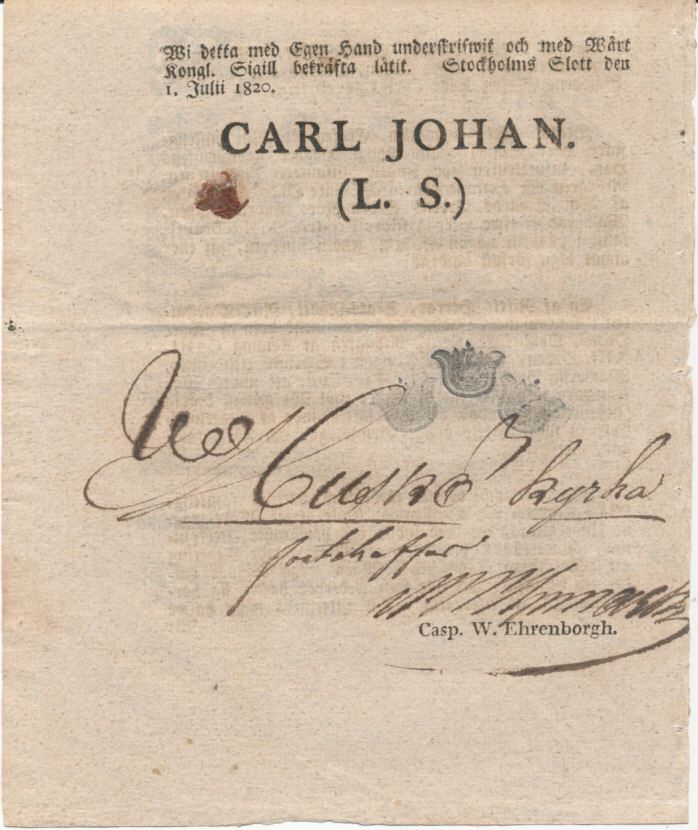 Wi detta med Egen Hand underskrifwit och med Wårt
Kongl. Sigill bekräfta låtit. Stockholms Slott den
1. Julii 1820.
CARL JOHAN.
(L. S.)
Muskö kyrka
Casp. W. Ehrenborgh.